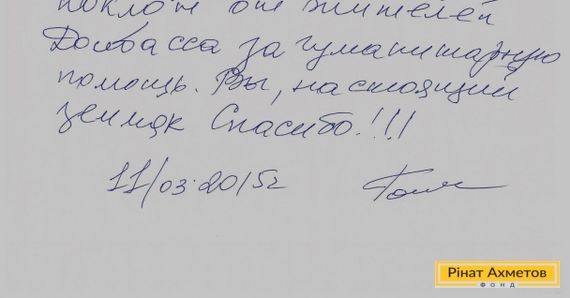 поклон от жителей
Донбасса за гуманитарную
помощь. Вы, настоящий
земляк Спасибо!!!
11/03.2015г
Рінат Ахметов
ФОНД